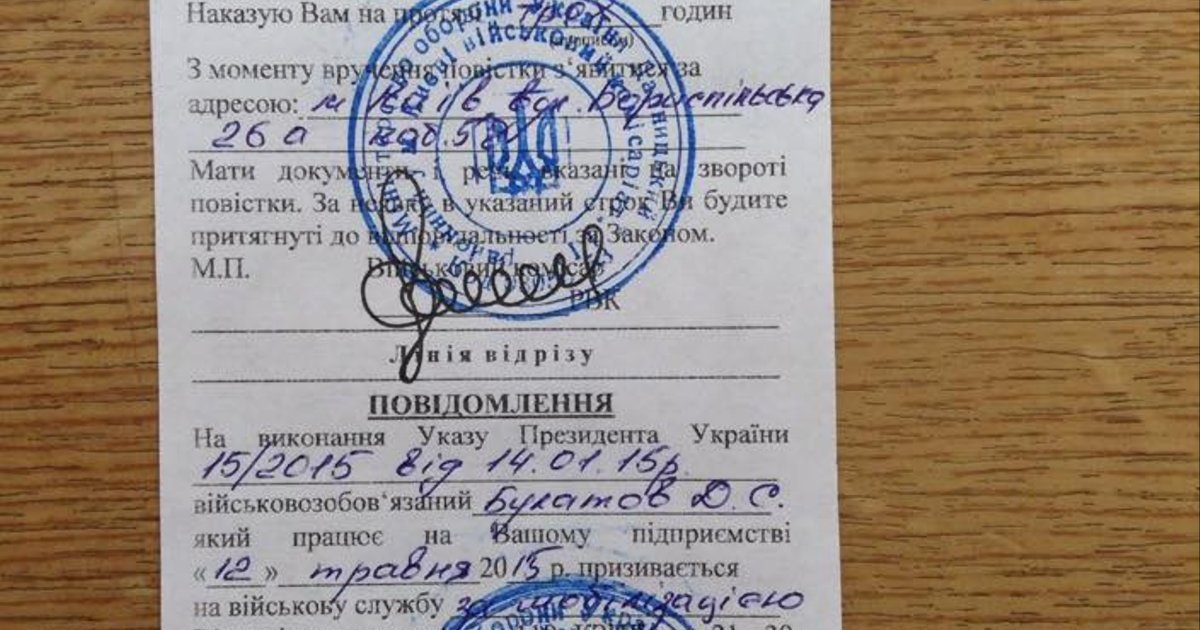 Наказую Вам на протязі трьох годин
(прописом)
З моменту вручення повістки з‘явитися за
адресою: м Київ вул. Бориспільська
26 а каб.
Мати документи і речі вказані на звороті
повістки. За неявку в указаний строк Ви будите
притягнуті до відповідальності за Законом.
М.П. Військовий комісар
РВК
Лінія відрізу
ПОВІДОМЛЕННЯ
На виконання Указу Президента України
15/2015 від 14.01.15р.
військовозобов‘язаний Булатов Д.С.
який працює на Вашому підприємстві
«12» травня 2015 р. призивається
на військову службу за мобілізацією